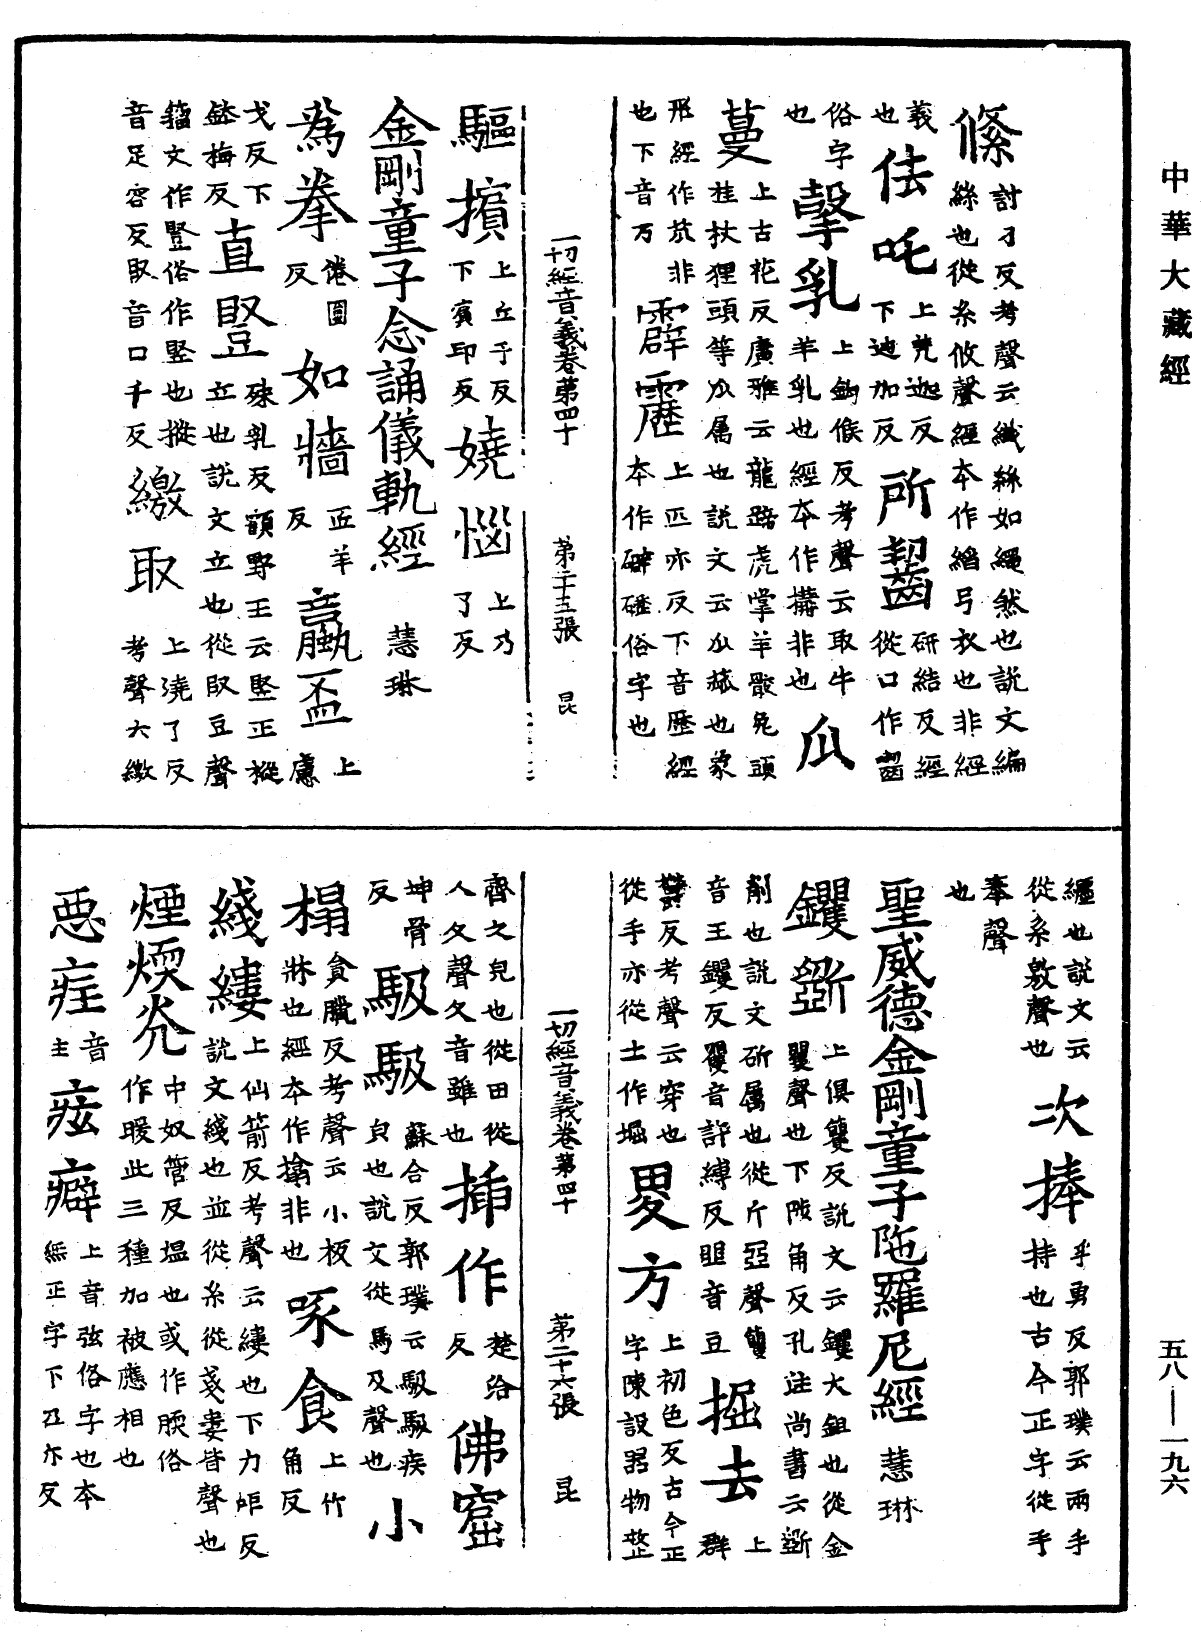 中華大藏經
絛討刀反考聲云織絲如繩然也說文編
絲也從糸攸聲經本作縚弓衣也非經
義也佉吒上羌迦反下迦加反所齧研結反經從口作嚙
俗字也㝅乳上鉤候反考聲云取牛羊乳也經本作搆非也瓜
蔓上古花反廣雅云龍蹄虎掌羊骹兔頭
桂杖狸頭等瓜屬也說文云瓜蓏也象
形經作苽非也下音万霹靂上匹亦反下音歷經本作礔礰俗字也
一切經音義卷第四十 第二十五張 昆
驅擯上丘于反下賓印反嬈惱上乃了反
金剛童子念誦儀軌經 慧琳
為拳倦圓反如牆匠羊反羸盃上盧
戈反下鉢梅反直竪殊乳反顧野王云竪正摐立也說文立也從臤豆聲
籀文作豎俗作竪也摐音足容反臤音口千反繳取上澆了反考聲云繳
纏也說文云從糸敫聲也次捧孚勇反郭璞云兩手持也古今正字從手
奉聲也
聖威德金剛童子陁羅尼經 慧琳
钁斲上俱籰反說文云钁大鉏也從金矍聲也下陟角反孔注尚書云斲
削也說文斫屬也從斤㔶聲籰音王钁反矍音許縛反㔶音豆掘去上群
欝反考聲云穿也從手亦從土作堀畟方上初色反古今正字陳設器物整
一切經音義卷第四十 第二十六張 昆
齊之皃也從田從人夂聲夂音雖也插作楚洽反佛窟
坤骨反馺馺蘇合反郭璞云馺馺疾皃也說文從馬及聲也小
榻貪臘反考聲云小板牀也經本作搨非也啄食上竹角反
綫縷上仙箭反考聲云縷也下力皡反說文綫也並從糸從戔婁皆聲也
煙煗炎中奴管反温也或作䏰俗作暖此三種加被應相也
惡疰音主痃癖上音弦俗字也本無正字下丑亦反
五八—一九六